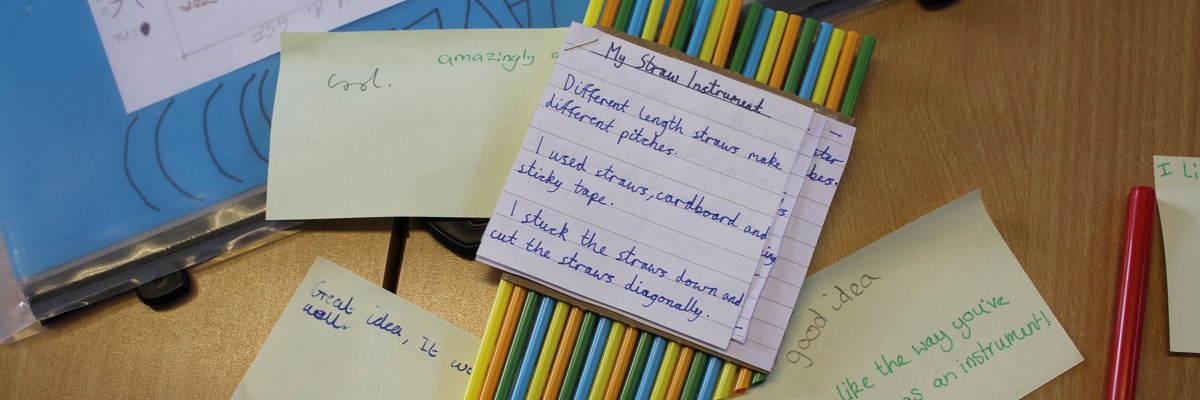 cool.
amazingly
My Straw Instrument
Different length straws make
different pitches.
I used straws, cardboard and
sticky tape.
I stuck the straws down and
cut the straws diagonally.
Great idea, It
well.
good idea
like the way you've
as an instrument!
I